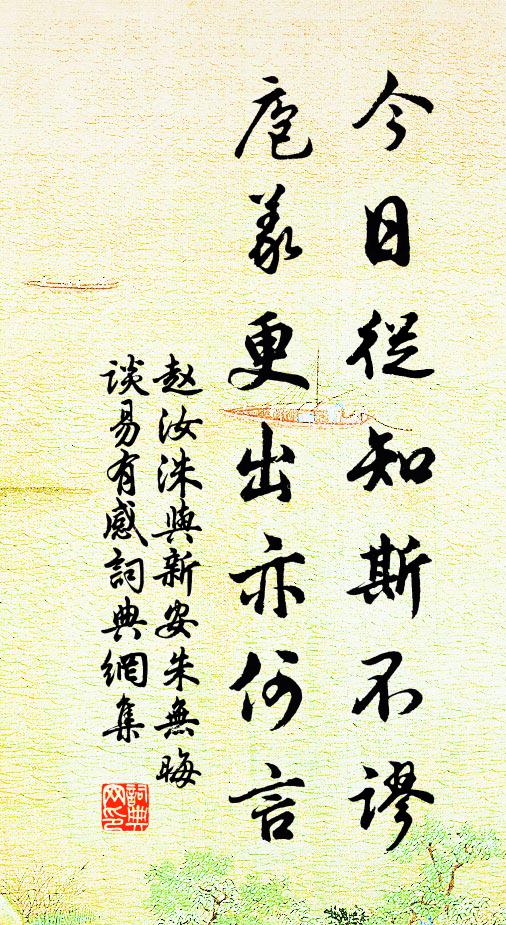 今日從知斯不謬
庖羲更出亦何言
赵汝洙與新安朱無晦
谈易有感詞典網集
詞典网印